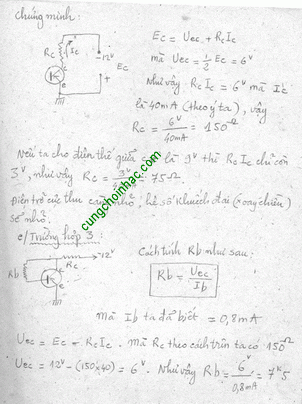 Chứng minh :
Rc
Ic
12V
Ec
e
Ec = Uec + RcIc
mà Uec = 1/2 Ec = 6V
Như vậy RcIc = 6V mà Ic
là 40mA (theo ý ta), vậy
Rc = 6V/40mA = 150Ω
Nếu ta cho điện thế giữa là 9V thì RcIc chỉ còn
3V, như vậy Rc = 75Ω
Điện trở càng nhỏ, hệ số khuếch đại (xoay chiều)
sẽ nhỏ.
cungchoinhac.com
c/ Trường hợp 3 :
12V
Rc
Rb
e
Cách tính Rb như sau :
Rb = Uec/Ib
mà Ib ta đã biết = 0,8mA
Uec = Ec - RcIc . mà Rc theo cách trên ta có 150Ω
Uec = 12V - (150x40) = 6V . Như vậy Rb = 6V/0,8mA = 7K5